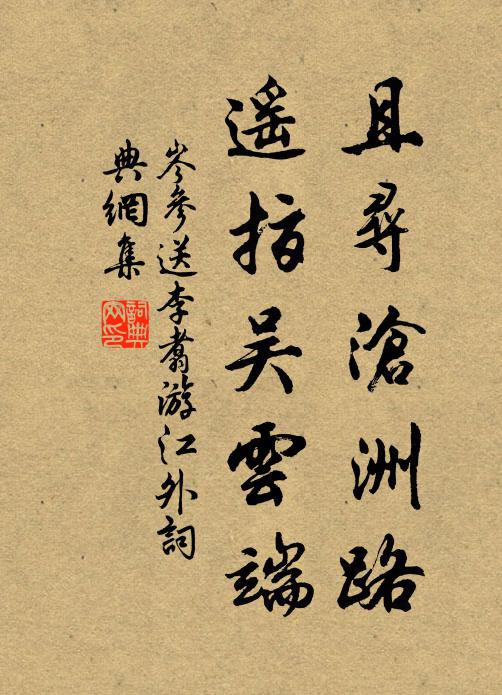 且尋滄洲路
遥指吴雲端
岑參送李翥游江外詞
典網集
詞典网印